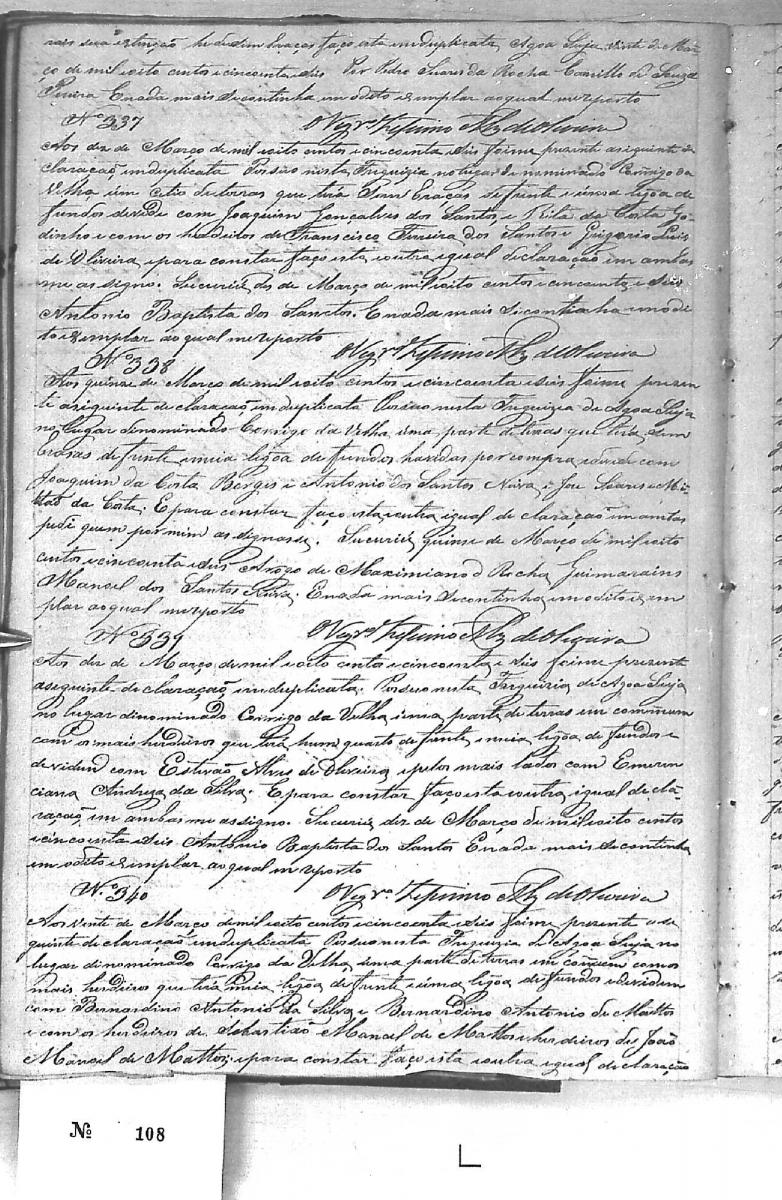 mais sua estenção hedadem braças faço esta induplicata, Agoa Suja vinte de Mar-
ço de mil oito centos e cincoenta e seis Por Pedro Soares da Rocha Camillo de Souza
Pereira Enada mais secontinha em odito exemplar aoqual mereporto
Nº 337 O Vegrº Zeferino Alz de Oliveira
Aos dez de Março de mil oito centos e cincoenta e seis foime prezente aseguinte de
claração induplicata Possuo nesta Freguizia no lugar denominado Corrigo da
Velha um citio de terras que terá braças de frente e uma legoa de
fundos devide com Joaquim Gonçalves dos Santos, e da Costa Go-
dinho e com os herdeiros de Francisco Ferreira dos Santos e Grigorio Luis
de Oliveira, epara constar faço esta eoutra igual declaração em ambas
me assigno. Sucuriú des de Março de mil oito centos e cincoenta e seis
Antonio Baptista dos Sanctos. Enada mais secontinha emodi-
to exemplar ao qual mereporto
Nº 338 O Vegrº Zeferino Alz de Oliveira
Aos quinze de Março de mil oito centos e cincoenta e seis foime prezen
te aseguinte declaração induplicata Possuo nesta Freguizia de Agoa Suja
no lugar denominado Corrigo da Velha, uma parte de terras que terá
braças de frente emeia legoa de fundos havidas por compra edevide com
Joaquim da Costa Borges e Antonio dos Santos Neiva, e José Soares e
da Costa. Epara constar faço esta eoutra igual declaração em ambas
pedi quem por mim assignasse. Sucuriú quinse de Março de mil oito
centos e cincoenta e seis Arogo de Maximiano d Rocha Guimarains
Manoel dos Santos Neiva. Enada mais secontinha emodito exem
plar aoqual mereporto
Nº 339 O Vegrº Zeferino Alz de Oliveira
Aos dez de Março de mil oito centos e cincoenta e seis foime prezente
aseguinte declaração induplicata. Possuo nesta Freguizia de Agoa Suja
no lugar denominado Corrigo da Velha uma parte de terras em commum
com os mais herdeiros que terá hum quarto de frente, emeia legoa de fundos e
devidem com Estevão Alves de Oliveira epelos mais lados com Emeren
ciana Andreza da Silva. Epara constar faço esta eoutra igual decla-
ração, em ambas me assigno. Sucuriú dez de Março de mil oito centos
e cincoenta e seis Antonio Baptista dos Santos Enada mais secontinha
em odito exemplar, aoqual mereporto
Nº 340 O Vegrº. Zeferino Alz de Oliveira
Aos vinte de Março demil oito centos e cincoenta e seis foime prezente ase
guinte declaração induplicata Possuo nesta Freguizia de Agoa Suja no
lugar denominado Corrigo da Velha, uma parte de terras em comum comos
mais herdeiros que terá meia legoa de frente e uma legoa de fundos edevidem
com Bernardino Antonio da Silva e Bernardino Antonio de Mattos
e com os herdeiros de Sebastião Manoel de Mattos eherdeiros de João
Manoel de Mattos, epara constar faço esta eoutra igual declaração
Nº 108